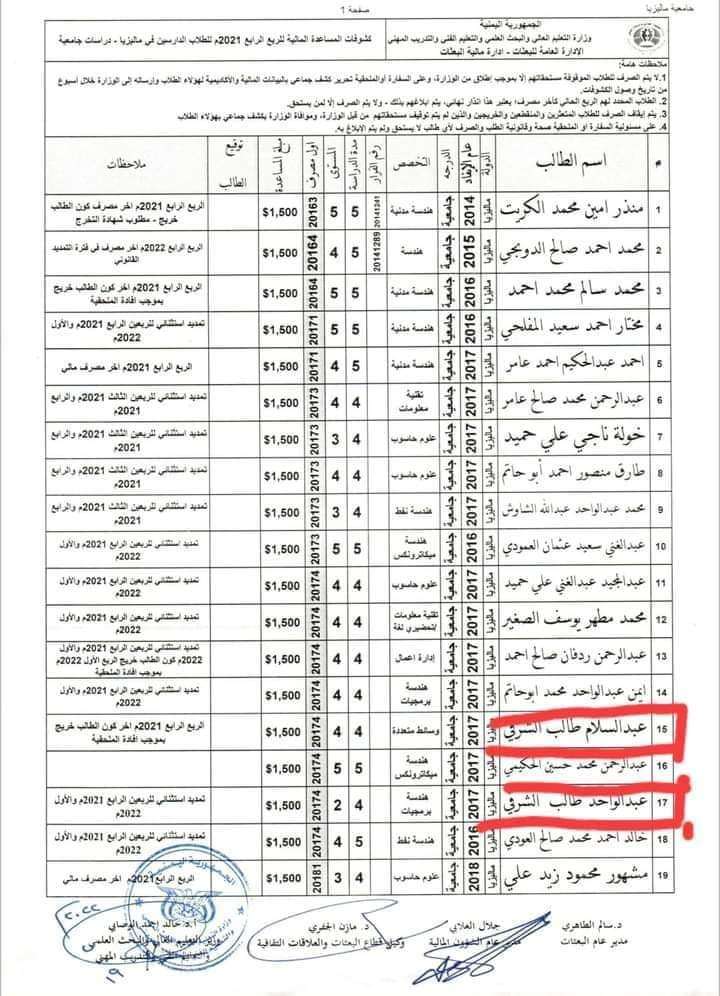 جامعية ماليزيا
صفحة 1
الجمهورية اليمنية
وزارة التعليم العالي والبحث العلمي والتعليم الفني والتدريب المهني
الإدارة العامة للبعثات - ادارة مالية البعثات
كشوفات المساعدة المالية للربع الرابع 2021م للطلاب الدارسين في ماليزيا - دراسات جامعية
ملاحظات هامة:
1. لا يتم الصرف للطلاب الموقوفة مستحقاتهم إلا بموجب إطلاق من الوزارة، وعلى السفارة أوالملحقية تحرير كشف جماعي بالبيانات المالية والأكاديمية لهؤلاء الطلاب وإرساله إلى الوزارة خلال أسبوع
من تاريخ وصول الكشوفات.
2. الطلاب المحدد لهم الربع الحالي كآخر مصرف؛ يعتبر هذا انذار نهائي، يتم ابلاغهم بذلك - ولا يتم الصرف إلا لمن يستحق.
3. يتم إيقاف الصرف للطلاب المتعثرين والمنقطعين والخريجين والذين لم يتم توقيف مستحقاتهم من قبل الوزارة، وموافاة الوزارة بكشف جماعي بهؤلاء الطلاب
4. على مسئولية السفارة او الملحقية صحة وقانونية الطلب والصرف لأي طالب لا يستحق ولم يتم الإبلاغ به.
# اسم الطالب الدولة عام الإيفاد الدرجه التخصص رقم القرار مدة الدراسة المستوى اول مصرف مبلغ المساعدة توقيع الطالب ملاحظات
1 منذر امين محمد الكريت ماليزيا 2014 جامعية هندسة مدنية 20141241 5 5 20163 $1,500 الربع الرابع 2021م اخر مصرف كون الطالب
خريج - مطلوب شهادة التخرج
2 محمد احمد صالح الدوبحي ماليزيا 2015 جامعية هندسة 20141289 5 4 20164 $1,500 الربع الرابع 2022م اخر مصرف في فترة التمديد
القانوني
3 محمد سالم محمد احمد ماليزيا 2016 جامعية هندسة مدنية 5 5 20164 $1,500 الربع الرابع 2021م اخر كون الطالب خريج
بموجب افادة الملحقية
4 مختار احمد سعيد المفلحي ماليزيا 2016 جامعية هندسة مدنية 5 5 20171 $1,500 تمديد استثنائي للربعين الرابع 2021م والأول
2022م
5 احمد عبدالحكيم احمد عامر ماليزيا 2017 جامعية هندسة مدنية 5 4 20171 $1,500 الربع الرابع 2021م اخر مصرف مالي
6 عبدالرحمن محمد صالح عامر ماليزيا 2017 جامعية تقنية معلومات 4 4 20173 $1,500 تمديد استثنائي للربعين الثالث 2021م والرابع
2021م
7 خولة ناجي علي حميد ماليزيا 2017 جامعية علوم حاسوب 4 3 20173 $1,500 تمديد استثنائي للربعين الثالث 2021م والرابع
2021م
8 طارق منصور احمد أبو حاتم ماليزيا 2017 جامعية علوم حاسوب 4 4 20173 $1,500 تمديد استثنائي للربعين الثالث 2021م والرابع
2021م
9 محمد عبدالواحد عبدالله الشاوش ماليزيا 2017 جامعية هندسة نفط 4 3 20173 $1,500 تمديد استثنائي للربعين الثالث 2021م والرابع
2021م
10 عبدالغني سعيد عثمان العمودي ماليزيا 2016 جامعية هندسة ميكاترونكس 5 5 20173 $1,500 تمديد استثنائي للربعين الرابع 2021م والأول
2022م
11 عبدالمجيد عبدالغني علي حميد ماليزيا 2017 جامعية علوم حاسوب 4 4 20174 $1,500 تمديد استثنائي للربعين الرابع 2021م والأول
2022م
12 محمد مطهر يوسف الصغير ماليزيا 2017 جامعية تقنية معلومات /تحضيري لغة 4 4 20174 $1,500 تمديد استثنائي للربعين الرابع 2021م والأول
2022م
13 عبدالرحمن ردفان صالح احمد ماليزيا 2017 جامعية إدارة اعمال 4 4 20174 $1,500 تمديد استثنائي للربعين الرابع 2021م والأول
2022م كون الطالب خريج الربع الأول 2022م
بموجب افادة الملحقية
14 ايمن عبدالواحد محمد ابوحاتم ماليزيا 2017 جامعية هندسة برمجيات 4 4 20174 $1,500 تمديد استثنائي للربعين الرابع 2021م والأول
2022م
15 عبدالسلام طالب الشرفي ماليزيا 2017 جامعية وسائط متعددة 4 4 20174 $1,500 الربع الرابع 2021م اخر كون الطالب خريج
بموجب افادة الملحقية
16 عبدالرحمن محمد حسين الحكيمي ماليزيا 2017 جامعية هندسة ميكاترونكس 5 5 20174 $1,500
17 عبدالواحد طالب الشرفي ماليزيا 2017 جامعية هندسة برمجيات 4 2 20174 $1,500 تمديد استثنائي للربعين الرابع 2021م والأول
2022م
18 خالد احمد محمد صالح العودي ماليزيا 2016 جامعية هندسة نفط 5 4 20174 $1,500 تمديد استثنائي للربعين الرابع 2021م والأول
2022م
19 مشهور محمود زيد علي ماليزيا 2018 جامعية علوم حاسوب 4 3 20181 $1,500 الربع الرابع2021م اخر مصرف مالي
د.سالم الطاهري
مدير عام البعثات
جلال العلاي
مدير عام الشؤون المالية
د. مازن الجفري
وكيل قطاع البعثات والعلاقات الثقافية
أ.د خالد احمد الوصابي
وزير التعليم العالي والبحث العلمي
والتعليم الفني والتدريب المهني